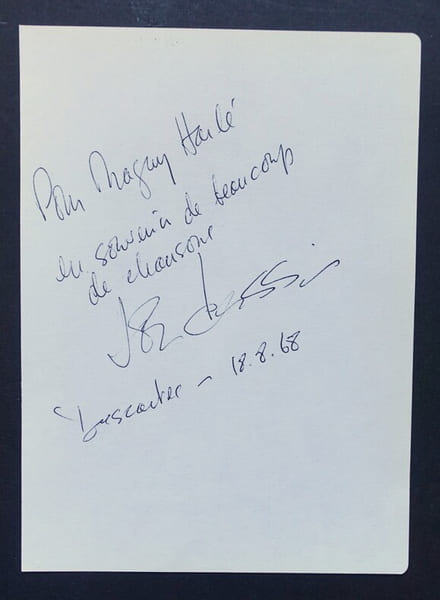 Pour Maguy Harlé
en souvenir de beaucoup
de chansons
Joe Dassin
- 18.8.68